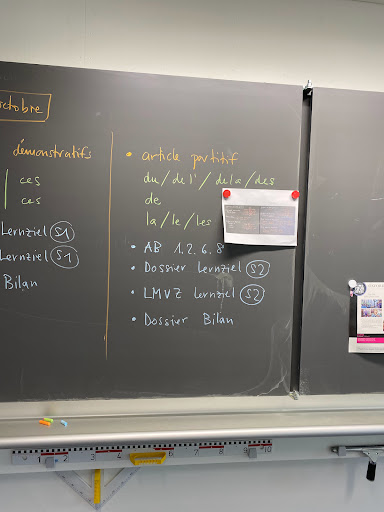 octobre
démonstratifs
ces
ces
Lernziel S1
Lernziel S1
Bilan
• article partitif
du/de l'/de la/des
de
la/le/les
• AB 1.2.6.8
• Dossier Lernziel S2
• LMVZ Lernziel S2
• Dossier Bilan
1 2 3 4 5 6 7 8 9 10